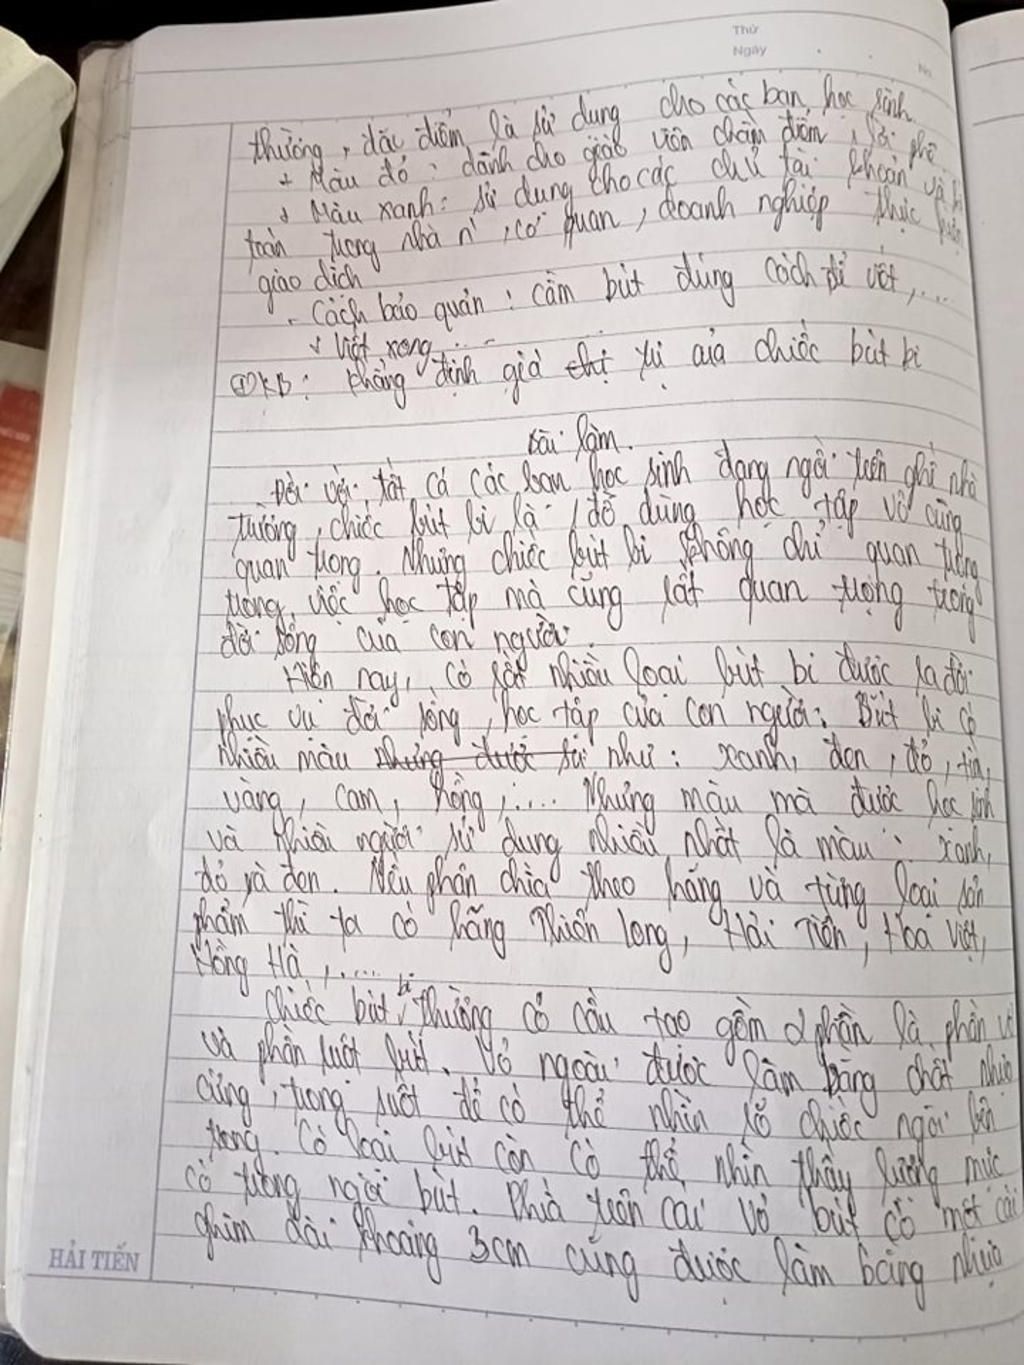 Thứ
Ngày
No.
thường, đặc điểm là sử dụng cho các bạn học sinh
+ Màu đỏ: dành cho giáo viên chấm điểm, lời phê
+ Màu xanh: sử dụng cho các chủ tài khoản và kế
toán trong nhà nc, cơ quan, doanh nghiệp thực hiện
giao dịch
- Cách bảo quản: cầm bút đúng cách để viết,....
+ Viết xong.....
KB: khẳng định giá trị của chiếc bút bi
Bài làm.
Đối với tất cả các bạn học sinh đang ngồi trên ghế nhà
trường, chiếc bút bi là đồ dùng học tập vô cùng
quan trọng. Nhưng chiếc bút bi không chỉ quan trọng
trong việc học tập mà cũng rất quan trọng trong
đời sống của con người.
Hiện nay, có rất nhiều loại bút bi được ra đời
phục vụ đời sống, học tập của con người. Bút bi có
nhiều màu như: xanh, đen, đỏ, tím,
vàng, cam, hồng,.... Nhưng màu mà được học sinh
và nhiều người sử dụng nhiều nhất là màu: xanh,
đỏ và đen. Nếu phân chia theo hãng và từng loại sản
phẩm thì ta có hãng Thiên Long, Hải Tiến, Hoa Việt,
Hồng Hà,.....
Chiếc bút bi thường có cấu tạo gồm 2 phần là phần vỏ
và phần ruột bút. Vỏ ngoài được làm bằng chất nhựa
cứng, trong suốt để có thể nhìn rõ chiếc ngòi bên
trong. Có loại bút còn có thể nhìn thấy lượng mực
có trong ngòi bút. Phía trên cái vỏ bút có một cái
ghim dài khoảng 3cm cũng được làm bằng nhựa
HẢI TIẾN